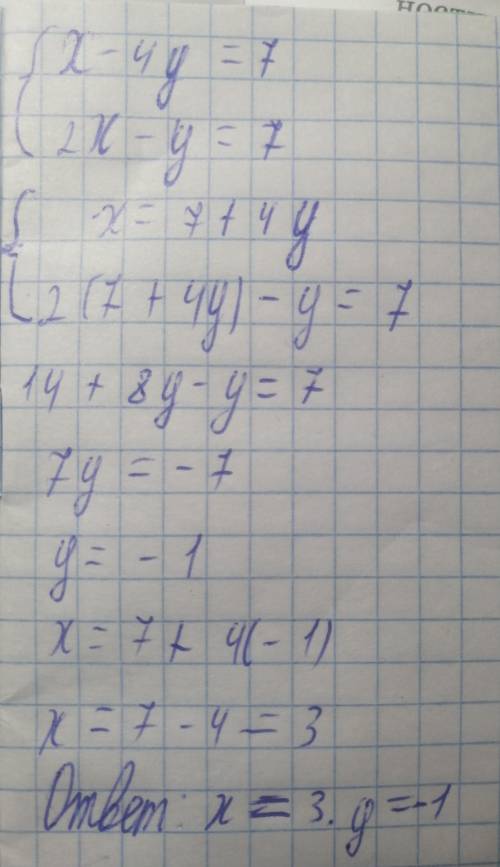 ност
x - 4y = 7
2x - y = 7
x = 7 + 4y
2(7 + 4y) - y = 7
14 + 8y - y = 7
7y = - 7
y = - 1
x = 7 + 4(- 1)
x = 7 - 4 = 3
Ответ: x = 3. y = -1